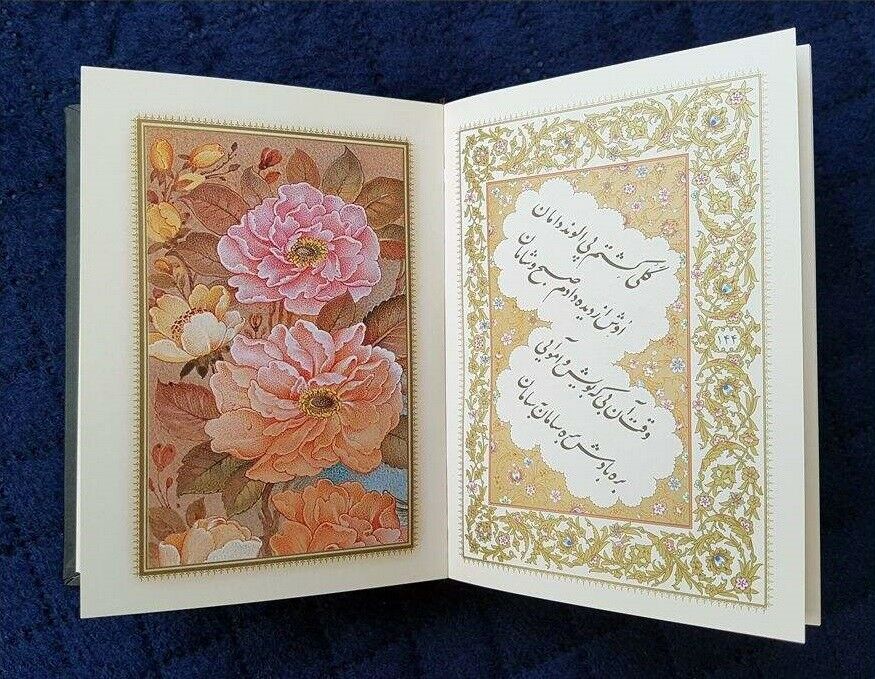 گلی کشتم پی الوند دامان
اوش از دیده دادم صبح و شامان
وقت آن بی که بویش وا مو آیی
بره بادش بره سامان بسامان
۱۴۴